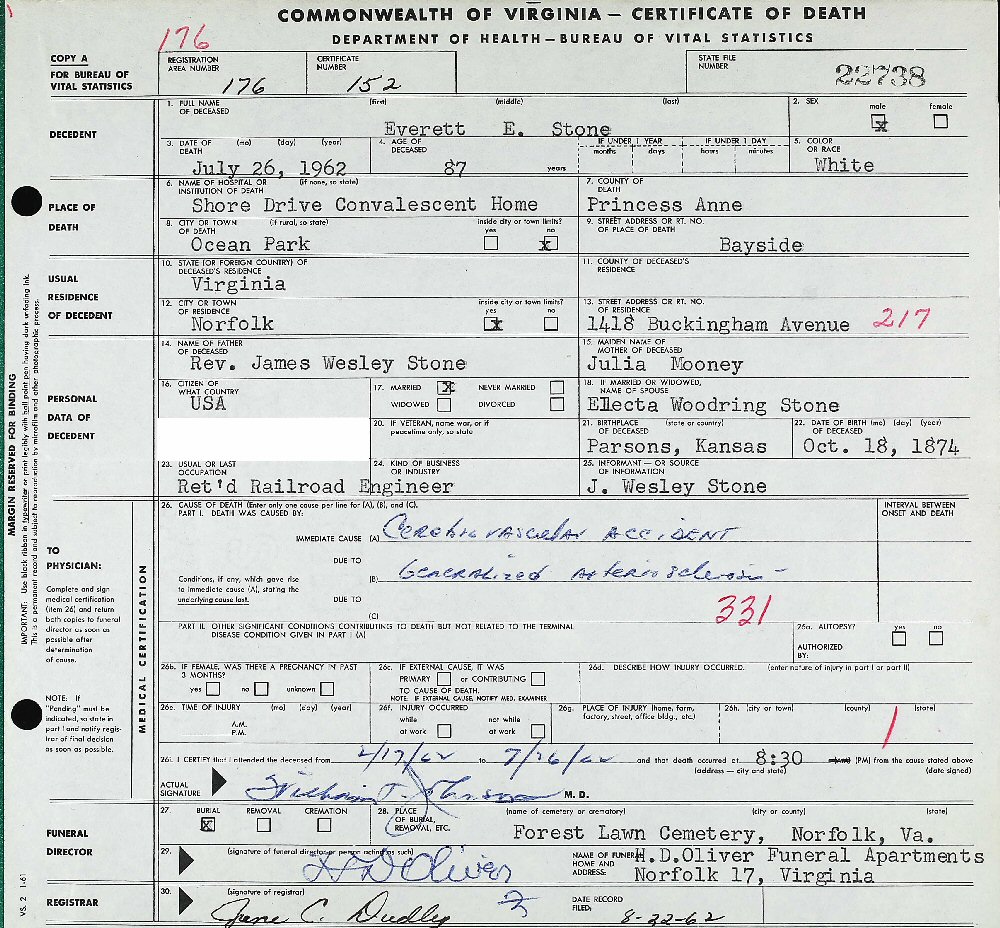 COMMONWEALTH OF VIRGINIA — CERTIFICATE OF DEATH
DEPARTMENT OF HEALTH — BUREAU OF VITAL STATISTICS
176
COPY A
FOR BUREAU OF
VITAL STATISTICS
REGISTRATION
AREA NUMBER
176
CERTIFICATE
NUMBER
152
STATE FILE
NUMBER
22738
DECEDENT
1. FULL NAME OF DECEASED (first) (middle) (last)
Everett E. Stone
2. SEX male female
x
3. DATE OF DEATH (mo) (day) (year)
July 26, 1962
4. AGE OF DECEASED
87 years
IF UNDER 1 YEAR
months days
IF UNDER 1 DAY
hours minutes
5. COLOR OR RACE
White
PLACE OF
DEATH
6. NAME OF HOSPITAL OR INSTITUTION OF DEATH (if none, so state)
Shore Drive Convalescent Home
7. COUNTY OF DEATH
Princess Anne
8. CITY OR TOWN OF DEATH (if rural, so state)
Ocean Park
inside city or town limits?
yes no
x
9. STREET ADDRESS OR RT. NO. OF PLACE OF DEATH
Bayside
USUAL
RESIDENCE
OF DECEDENT
10. STATE (OR FOREIGN COUNTRY) OF DECEASED'S RESIDENCE
Virginia
11. COUNTY OF DECEASED'S RESIDENCE
12. CITY OR TOWN OF RESIDENCE
Norfolk
inside city or town limits?
yes no
x
13. STREET ADDRESS OR RT. NO. OF RESIDENCE
1418 Buckingham Avenue 217
PERSONAL
DATA OF
DECEDENT
14. NAME OF FATHER OF DECEASED
Rev. James Wesley Stone
15. MAIDEN NAME OF MOTHER OF DECEASED
Julia Mooney
16. CITIZEN OF WHAT COUNTRY
USA
17. MARRIED x NEVER MARRIED
WIDOWED DIVORCED
18. IF MARRIED OR WIDOWED, NAME OF SPOUSE
Electa Woodring Stone
20. IF VETERAN, name war, or if peacetime only, so state
21. BIRTHPLACE OF DECEASED (state or country)
Parsons, Kansas
22. DATE OF BIRTH (mo) (day) (year) OF DECEASED
Oct. 18, 1874
23. USUAL OR LAST OCCUPATION
24. KIND OF BUSINESS OR INDUSTRY
Ret'd Railroad Engineer
25. INFORMANT — OR SOURCE OF INFORMATION
J. Wesley Stone
TO
PHYSICIAN:
Complete and sign
medical certification
(item 26) and return
both copies to funeral
director as soon as
possible after
determination
of cause.
NOTE: If
"Pending" must be
indicated, so state in
part I and notify regis-
trar of final decision
as soon as possible.
MEDICAL CERTIFICATION
26. CAUSE OF DEATH (Enter only one cause per line for (A), (B), and (C).
PART I. DEATH WAS CAUSED BY:
INTERVAL BETWEEN
ONSET AND DEATH
IMMEDIATE CAUSE (A) Cerebrovascular Accident
DUE TO
(B) Generalized Arteriosclerosis
Conditions, if any, which gave rise
to immediate cause (A), stating the
underlying cause last.
DUE TO
(C)
331
PART II. OTHER SIGNIFICANT CONDITIONS CONTRIBUTING TO DEATH BUT NOT RELATED TO THE TERMINAL
DISEASE CONDITION GIVEN IN PART I (A)
26a. AUTOPSY? yes no
AUTHORIZED
BY:
26b. IF FEMALE, WAS THERE A PREGNANCY IN PAST
3 MONTHS?
yes no unknown
26c. IF EXTERNAL CAUSE, IT WAS
PRIMARY or CONTRIBUTING
TO CAUSE OF DEATH.
NOTE: IF EXTERNAL CAUSE, NOTIFY MED. EXAMINER
26d. DESCRIBE HOW INJURY OCCURRED. (enter nature of injury in part I or part II)
26e. TIME OF INJURY (mo) (day) (year)
A.M.
P.M.
26f. INJURY OCCURRED
while at work not while at work
26g. PLACE OF INJURY (home, farm, factory, street, office bldg., etc.)
26h. (city or town) (county) (state)
1
26i. I CERTIFY that I attended the deceased from 2/17/62 to 7/26/62 and that death occurred at 8:30 (PM) from the cause stated above
(address — city and state) (date signed)
ACTUAL
SIGNATURE
William T. Johnson M. D.
FUNERAL
DIRECTOR
27. BURIAL REMOVAL CREMATION
x
28. PLACE OF BURIAL, REMOVAL, ETC.
(name of cemetery or crematory) (city or county) (state)
Forest Lawn Cemetery, Norfolk, Va.
29. (signature of funeral director or person acting as such)
H D Oliver
NAME OF FUNERAL
HOME AND
ADDRESS:
H.D.Oliver Funeral Apartments
Norfolk 17, Virginia
REGISTRAR
30. (signature of registrar)
June C. Dudley
DATE RECORD
FILED:
8-22-62
MARGIN RESERVED FOR BINDING
IMPORTANT: Use black ribbon in typewriter or print legibly with ball point pen having dark unfading ink.
This is a permanent record and subject to reproduction by microfilm and other photographic process.
VS. 2 1-61